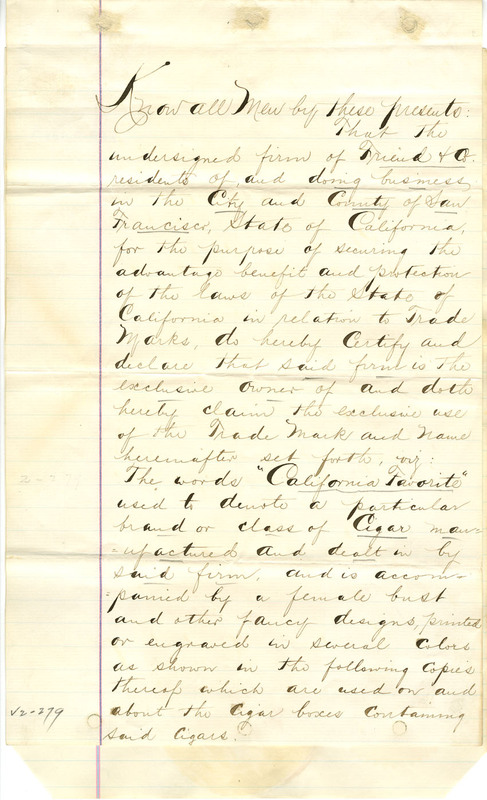 Know all Men by these presents:
That the
undersigned firm of Friend & Co.
residents of, and doing business
in the City and County of San
Francisco, State of California,
for the purpose of securing the
advantage benefit and protection
of the laws of the State of
California in relation to Trade
Marks, do hereby Certify and
declare that said firm is the
exclusive owner of and doth
hereby claim the exclusive use
of the Trade Mark and Name
hereinafter set forth, viz:
The words "California Favorite"
used to denote a particular
brand or class of Cigar man-
=ufactured and dealt in by
said firm, and is accom-
=panied by a female bust
and other fancy designs, printed
or engraved in several colors
as shown in the following copies
thereof which are used on and
about the Cigar boxes containing
said Cigars.
V2-279